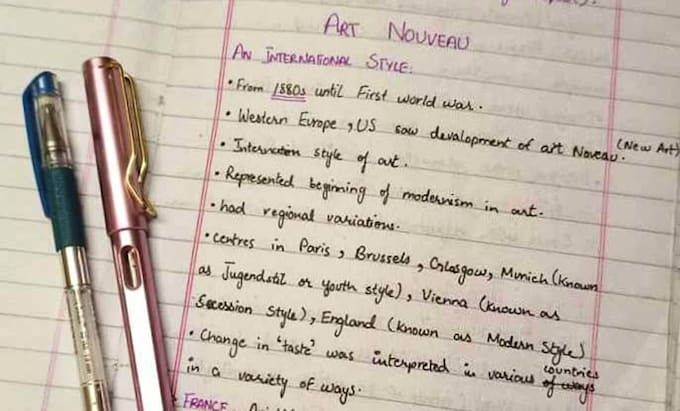 ART NOUVEAU
AN INTERNATIONAL STYLE:
• From 1880s until First world war.
• Western Europe, US saw devalopment of art Noveau. (New Art)
• Internation style of art.
• Represented beginning of modernism in art.
• had regional variations.
• centres in Paris, Brussels, Glasgow, Munich (known
as Jugendstil or youth style), Vienna (known as
Secession Style), England (known as Modern Style)
• Change in 'taste' was interpreted in various countries
in a variety of ways.
FRANCE